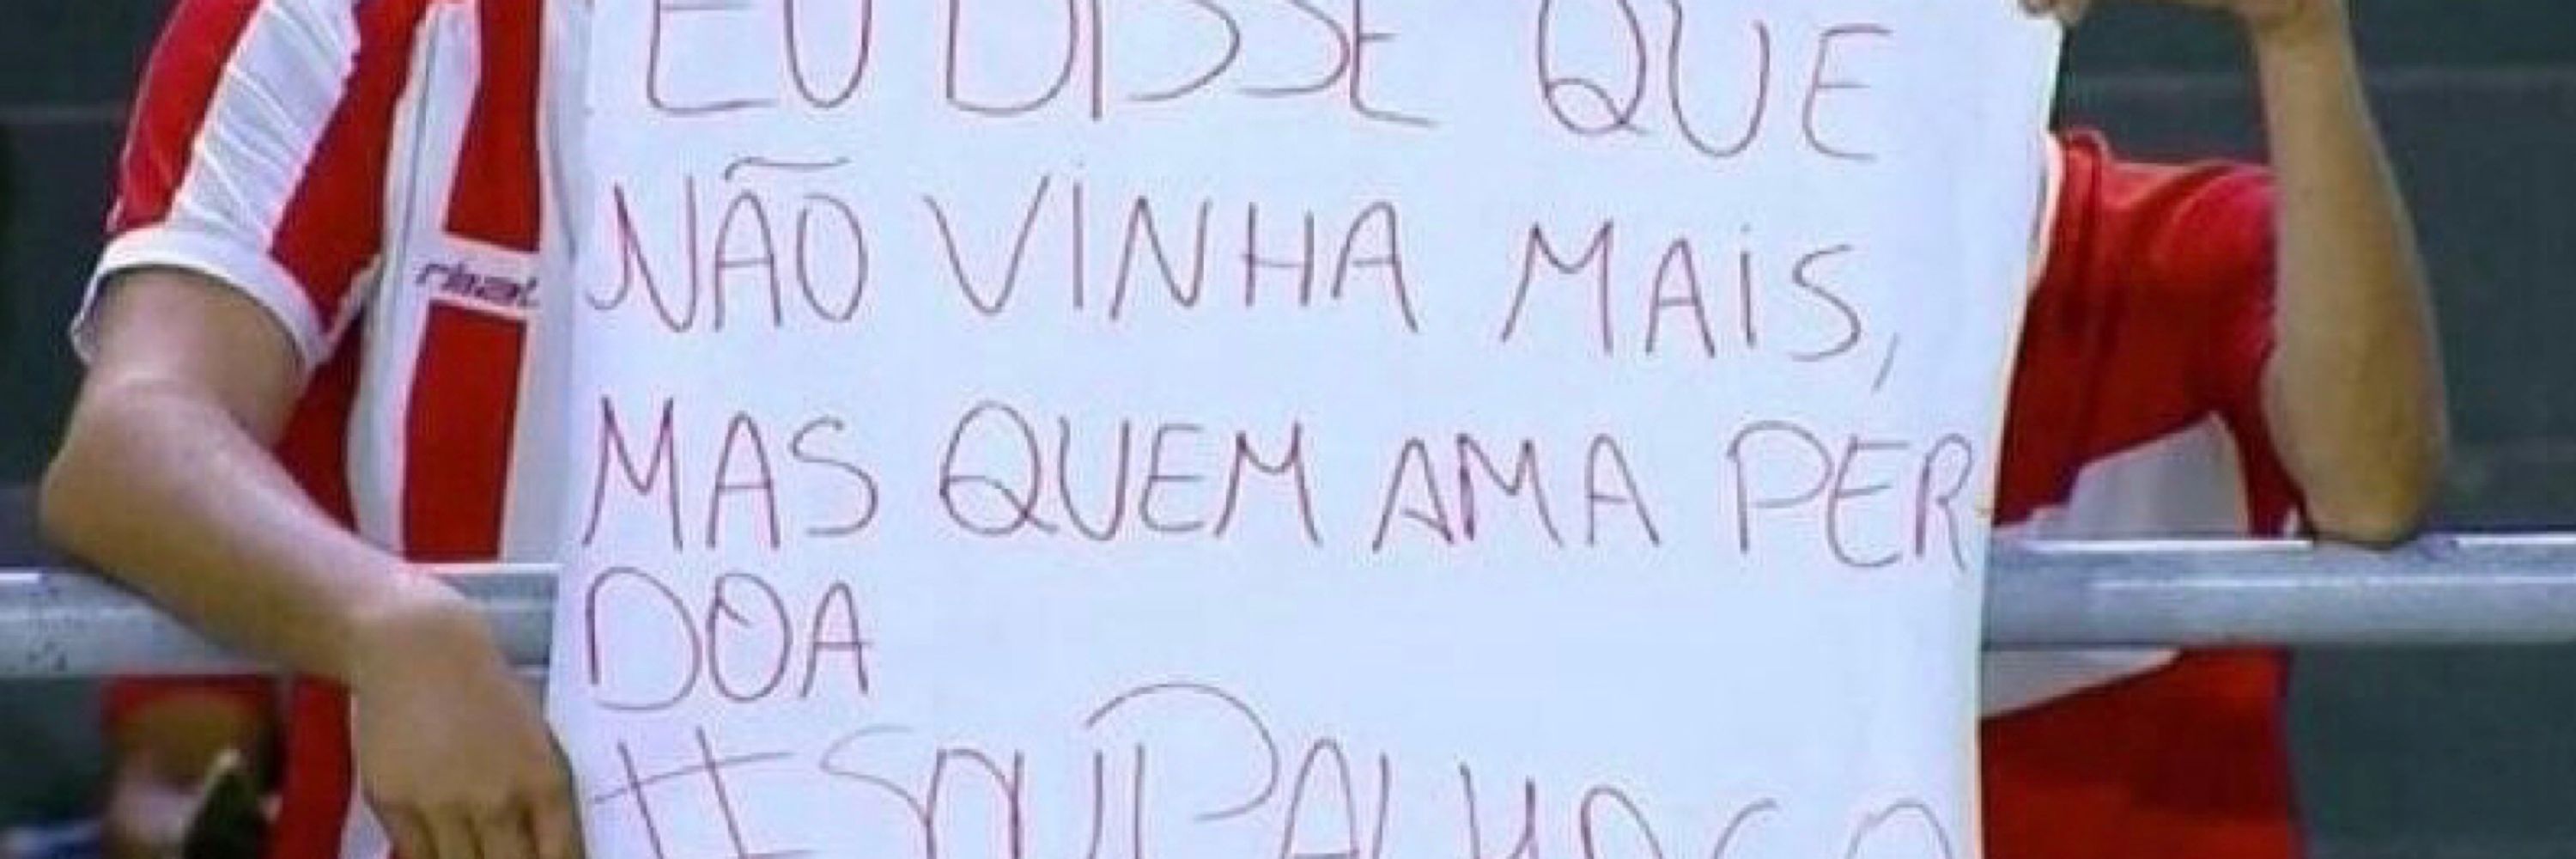 EU DISSE QUE
NÃO VINHA MAIS,
MAS QUEM AMA PER
DOA
#SOUPALHAÇO
rinat